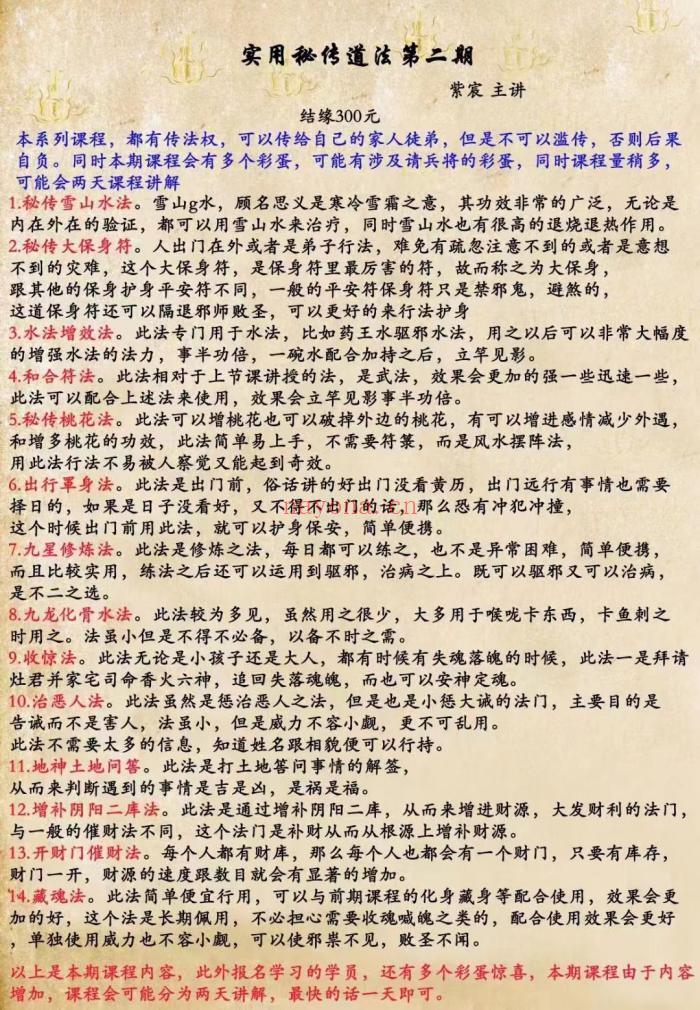 实用秘传道法第二期
紫宸 主讲
结缘300元
本系列课程，都有传法权，可以传给自己的家人徒弟，但是不可以滥传，否则后果
自负。同时本期课程会有多个彩蛋，可能有涉及请兵将的彩蛋，同时课程量稍多，
可能会两天课程讲解
1.秘传雪山水法。雪山g水，顾名思义是寒冷雪霜之意，其功效非常的广泛，无论是
内在外在的验证，都可以用雪山水来治疗，同时雪山水也有很高的退烧退热作用。
2.秘传大保身符。人出门在外或者是弟子行法，难免有疏忽注意不到的或者是意想
不到的灾难，这个大保身符，是保身符里最厉害的符，故而称之为大保身，
跟其他的保身护身平安符不同，一般的平安符保身符只是禁邪鬼，避煞的，
这道保身符还可以隔退邪师败圣，可以更好的来行法护身
3.水法增效法。此法专门用于水法，比如药王水驱邪水法，用之以后可以非常大幅度
的增强水法的法力，事半功倍，一碗水配合加持之后，立竿见影。
4.和合符法。此法相对于上节课讲授的法，是武法，效果会更加的强一些迅速一些，
此法可以配合上述法来使用，效果会立竿见影事半功倍。
5.秘传桃花法。此法可以增桃花也可以破掉外边的桃花，有可以增进感情减少外遇，
和增多桃花的功效，此法简单易上手，不需要符箓，而是风水摆阵法，
用此法行法不易被人察觉又能起到奇效。
6.出行罩身法。此法是出门前，俗话讲的好出门没看黄历，出门远行有事情也需要
择日的，如果是日子没看好，又不得不出门的话，那么恐有冲犯冲撞，
这个时候出门前用此法，就可以护身保安，简单便携。
nayona.cn
7.九星修炼法。此法是修炼之法，每日都可以练之，也不是异常困难，简单便携，
而且比较实用，练法之后还可以运用到驱邪，治病之上。既可以驱邪又可以治病，
是不二之选。
8.九龙化骨水法。此法较为多见，虽然用之很少，大多用于喉咙卡东西，卡鱼刺之
时用之。法虽小但是不得不必备，以备不时之需。
9.收惊法。此法无论是小孩子还是大人，都有时候有失魂落魄的时候，此法一是拜请
灶君并家宅司命香火六神，追回失落魂魄，而也可以安神定魂。
10.治恶人法。此法虽然是惩治恶人之法，但是也是小惩大诫的法门，主要目的是
告诫而不是害人，法虽小，但是威力不容小觑，更不可乱用。
此法不需要太多的信息，知道姓名跟相貌便可以行持。
11.地神土地问答。此法是打土地答问事情的解签，
从而来判断遇到的事情是吉是凶，是祸是福。
12.增补阴阳二库法。此法是通过增补阴阳二库，从而来增进财源，大发财利的法门，
与一般的催财法不同，这个法门是补财从而从根源上增补财源。
13.开财门催财法。每个人都有财库，那么每个人也都会有一个财门，只要有库存，
财门一开，财源的速度跟数目就会有显著的增加。
14.藏魂法。此法简单便宜行用，可以与前期课程的化身藏身等配合使用，效果会更
加的好，这个法是长期佩用，不必担心需要收魂喊魄之类的，配合使用效果会更好
，单独使用威力也不容小觑，可以使邪祟不见，败圣不闻。
以上是本期课程内容，此外报名学习的学员，还有多个彩蛋惊喜，本期课程由于内容
增加，课程会可能分为两天讲解，最快的话一天即可。